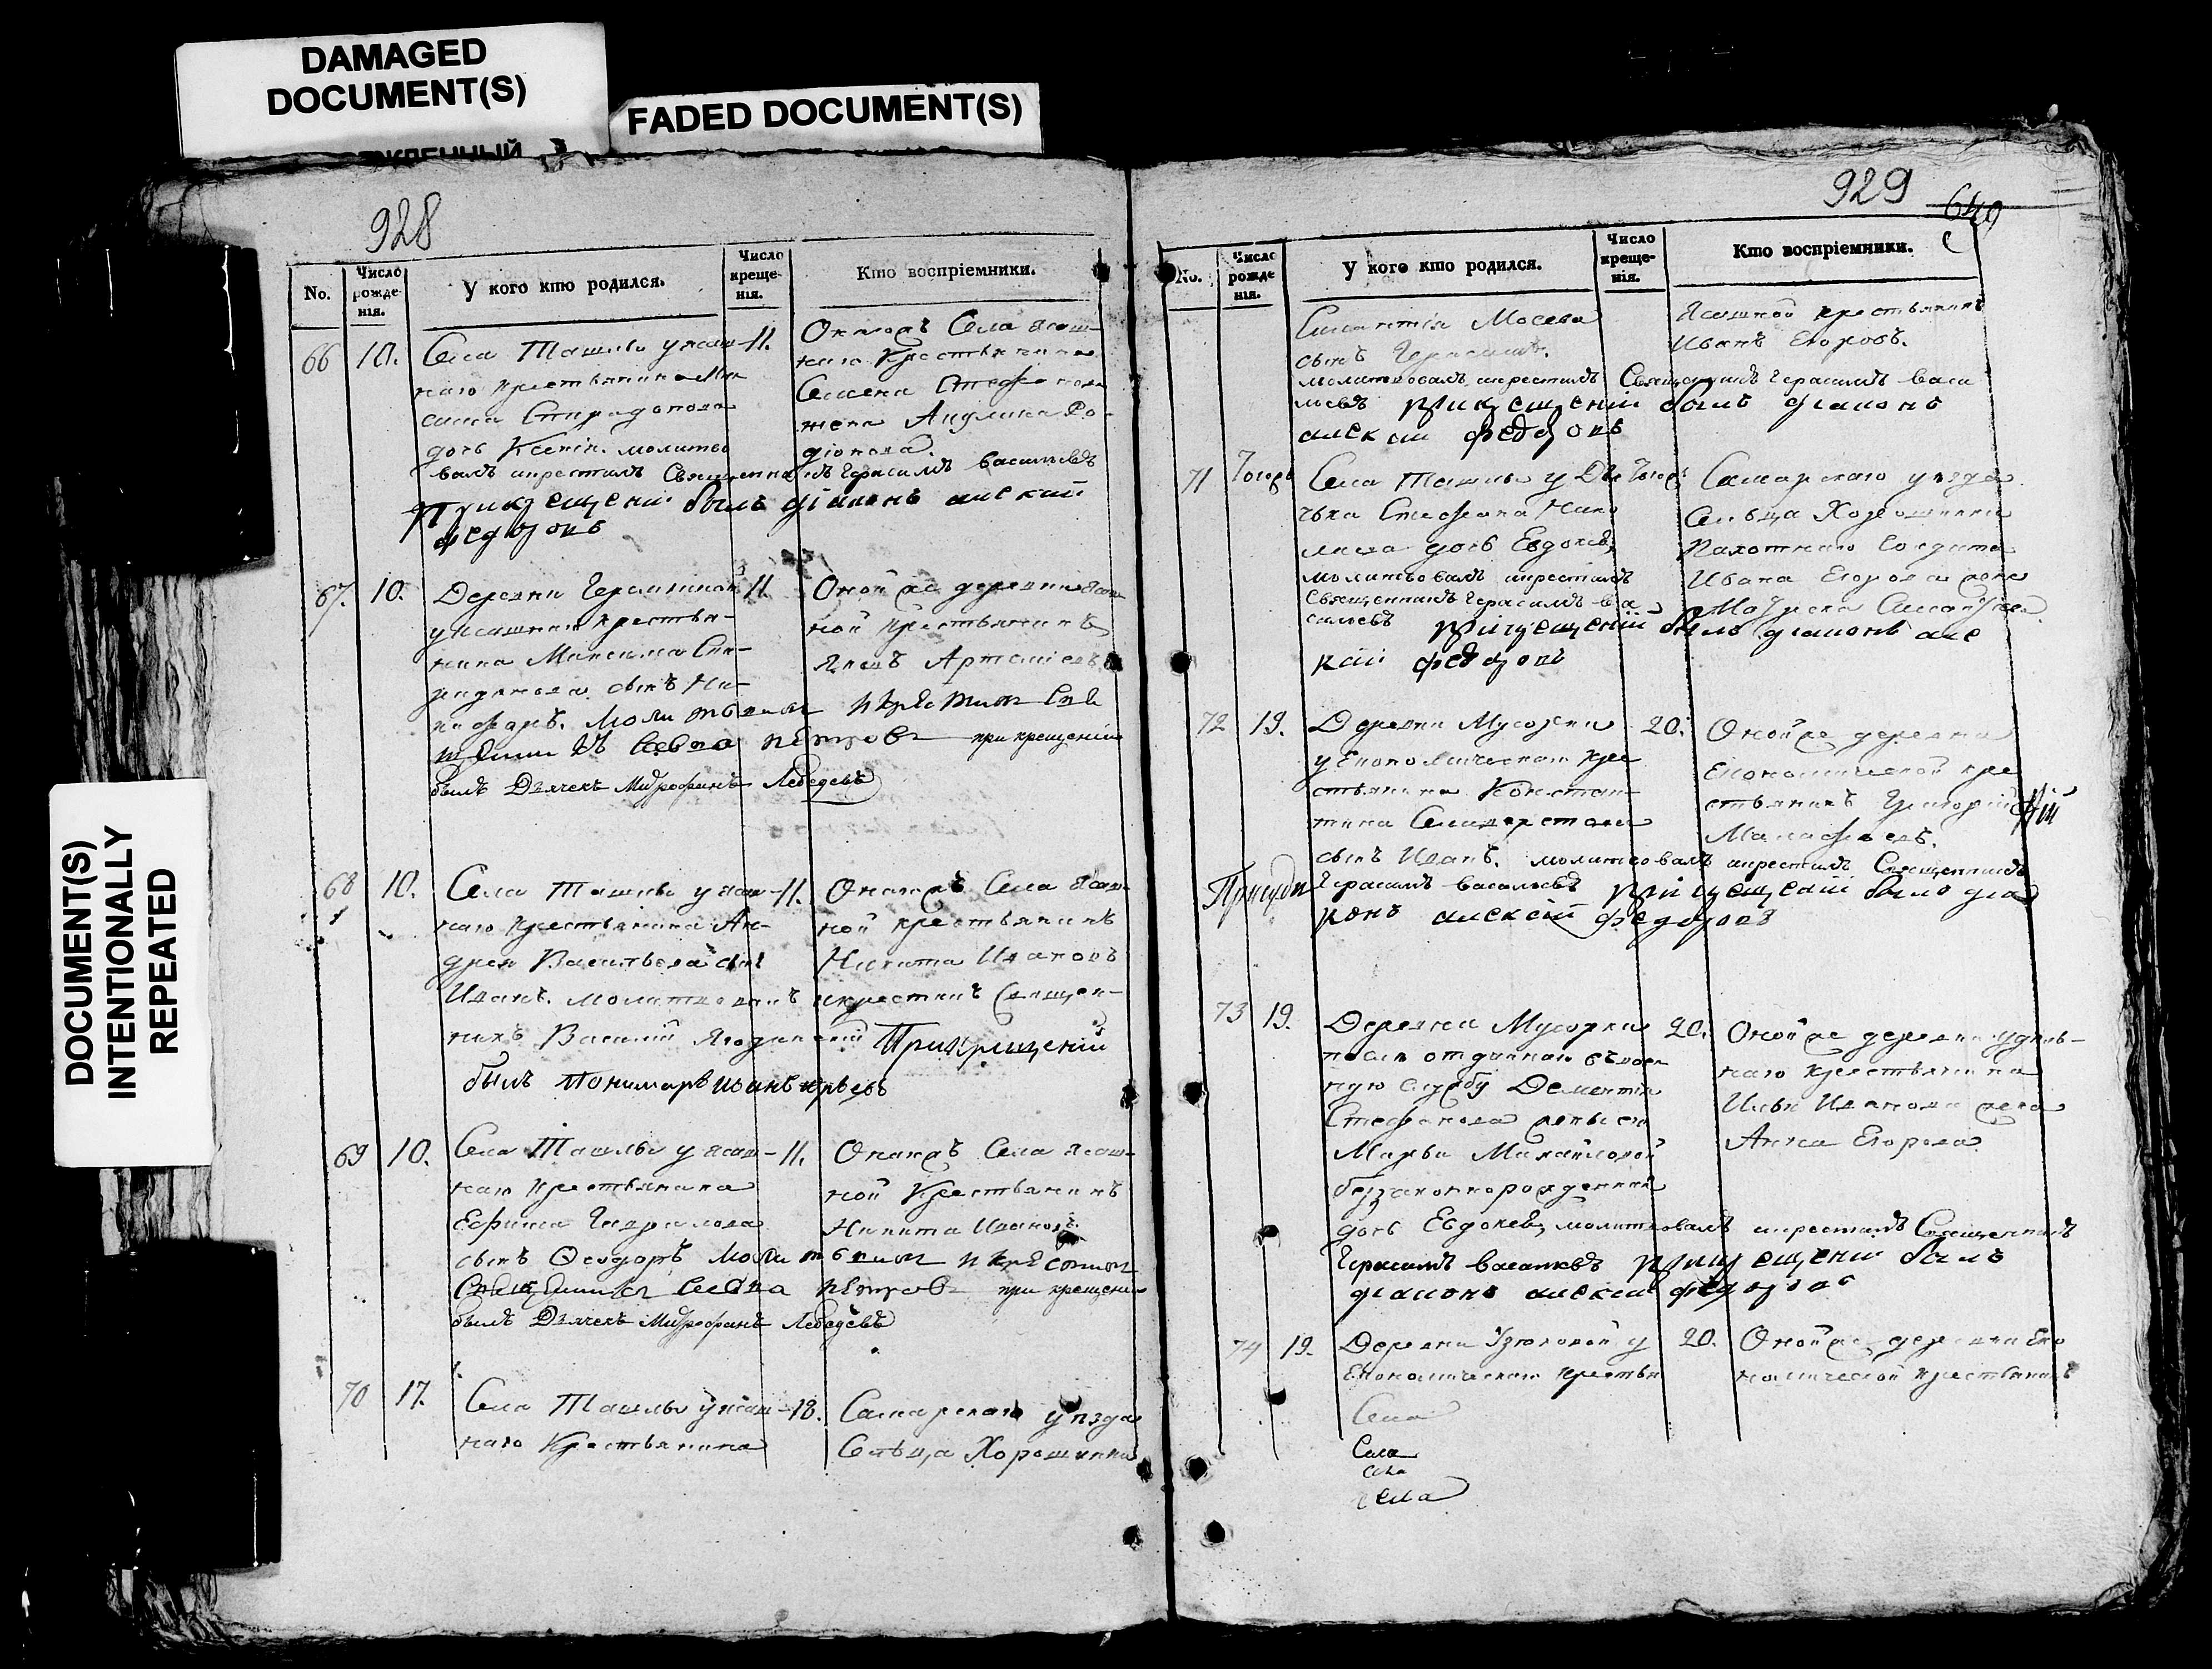 DAMAGED
DOCUMENT(S)
FADED DOCUMENT(S)
DOCUMENT(S)
INTENTIONALLY
REPEATED
928
No.
Число рожденія.
У кого кто родился.
Число крещенія.
Кто воспріемники.
66 10. Села Ташлы у ясаш- 11.
наго крестьянина Мак
сима Спиридонова
дочь Ксенія. молитво
валъ икрестилъ Священникъ Герасимъ Васильевъ
прикрещеніи былъ діаконъ алексій
федоровъ
Села ясаш-
наго Крестьянина
Семена Стефанова
жена Акулина Ро-
діонова.
67. 10. Деревни 11.
у ясашнаго крестья-
нина Максима Спи-
ридонова сынъ Ни-
кифоръ. молитвовалъ икрестилъ
петровъ при крещеніи
былъ Дьячекъ Митрофанъ Лебедевъ
Оной же деревни ясаш
ной крестьянинъ
Яковъ Артемьевъ
68 10. Села Ташлы у ясаш- 11.
наго крестьянина Ан-
дрея Васильева сынъ
Иванъ. молитвовалъ икрестилъ Священ-
никъ Василий
Прикрещеніи
былъ Пономарь иванъ
Села ясаш-
ной крестьянинъ
Никита Ивановъ
69 10. Села Ташлы у ясаш- 11.
наго крестьянина
Ефрема Гаврилова
сынъ Ѳеодоръ молитвовалъ икрестилъ
петровъ при крещеніи
былъ Дьячекъ Митрофанъ Лебедевъ
Села ясаш-
ной Крестьянинъ
Никита Ивановъ
70 17. Села Ташлы у ясаш- 18.
наго Крестьянина
Самарскаго уѣзда
Сельца Хорошинки
929
No.
Число рожденія.
У кого кто родился.
Число крещенія.
Кто воспріемники.
Мосева
сынъ Герасимъ.
молитвовалъ икрестилъ Священникъ Герасимъ Васи
льевъ прикрещеніи былъ діаконъ
алексій федоровъ
Ясашной крестьянинъ
Иванъ Егоровъ.
71 Села Ташлы у Дья
чька Стефана Нико
лаева дочь Евдокея,
молитвовалъ икрестилъ
Священникъ Герасимъ Ва
сильевъ прикрещеніи былъ діаконъ але
ксій федоровъ
Самарскаго уѣзда
Сельца Хорошинки
Пахотнаго Солдата
Ивана Егорова жена
72 19. Деревни Мусорки 20.
у Економическаго кре
стьянина Констан-
тина Селиверстова
сынъ Иванъ. молитвовалъ икрестилъ Священникъ
Герасимъ Васильевъ прикрещеніи былъ діа
конъ алексій федоровъ
Оной же деревни
Економической кре
стьянинъ Григорій
73 19. Деревни Мусорки 20.
послѣ отданнаго въвоен
ную службу Дементія
Стефанова жены ево
Марьи Михайловой
беззаконнорожденная
дочь Евдокея, молитвовалъ икрестилъ Священникъ
Герасимъ Васильевъ прикрещеніи былъ
діаконъ алексій федоровъ
Оной же деревни удѣль-
наго крестьянина
Ильи Иванова жена
Анна Егорова
74 19. Деревни Узюковой у 20.
Економическаго крестья
Оной же деревни Еко
номической крестьянинъ
Села
Села
Села
Села